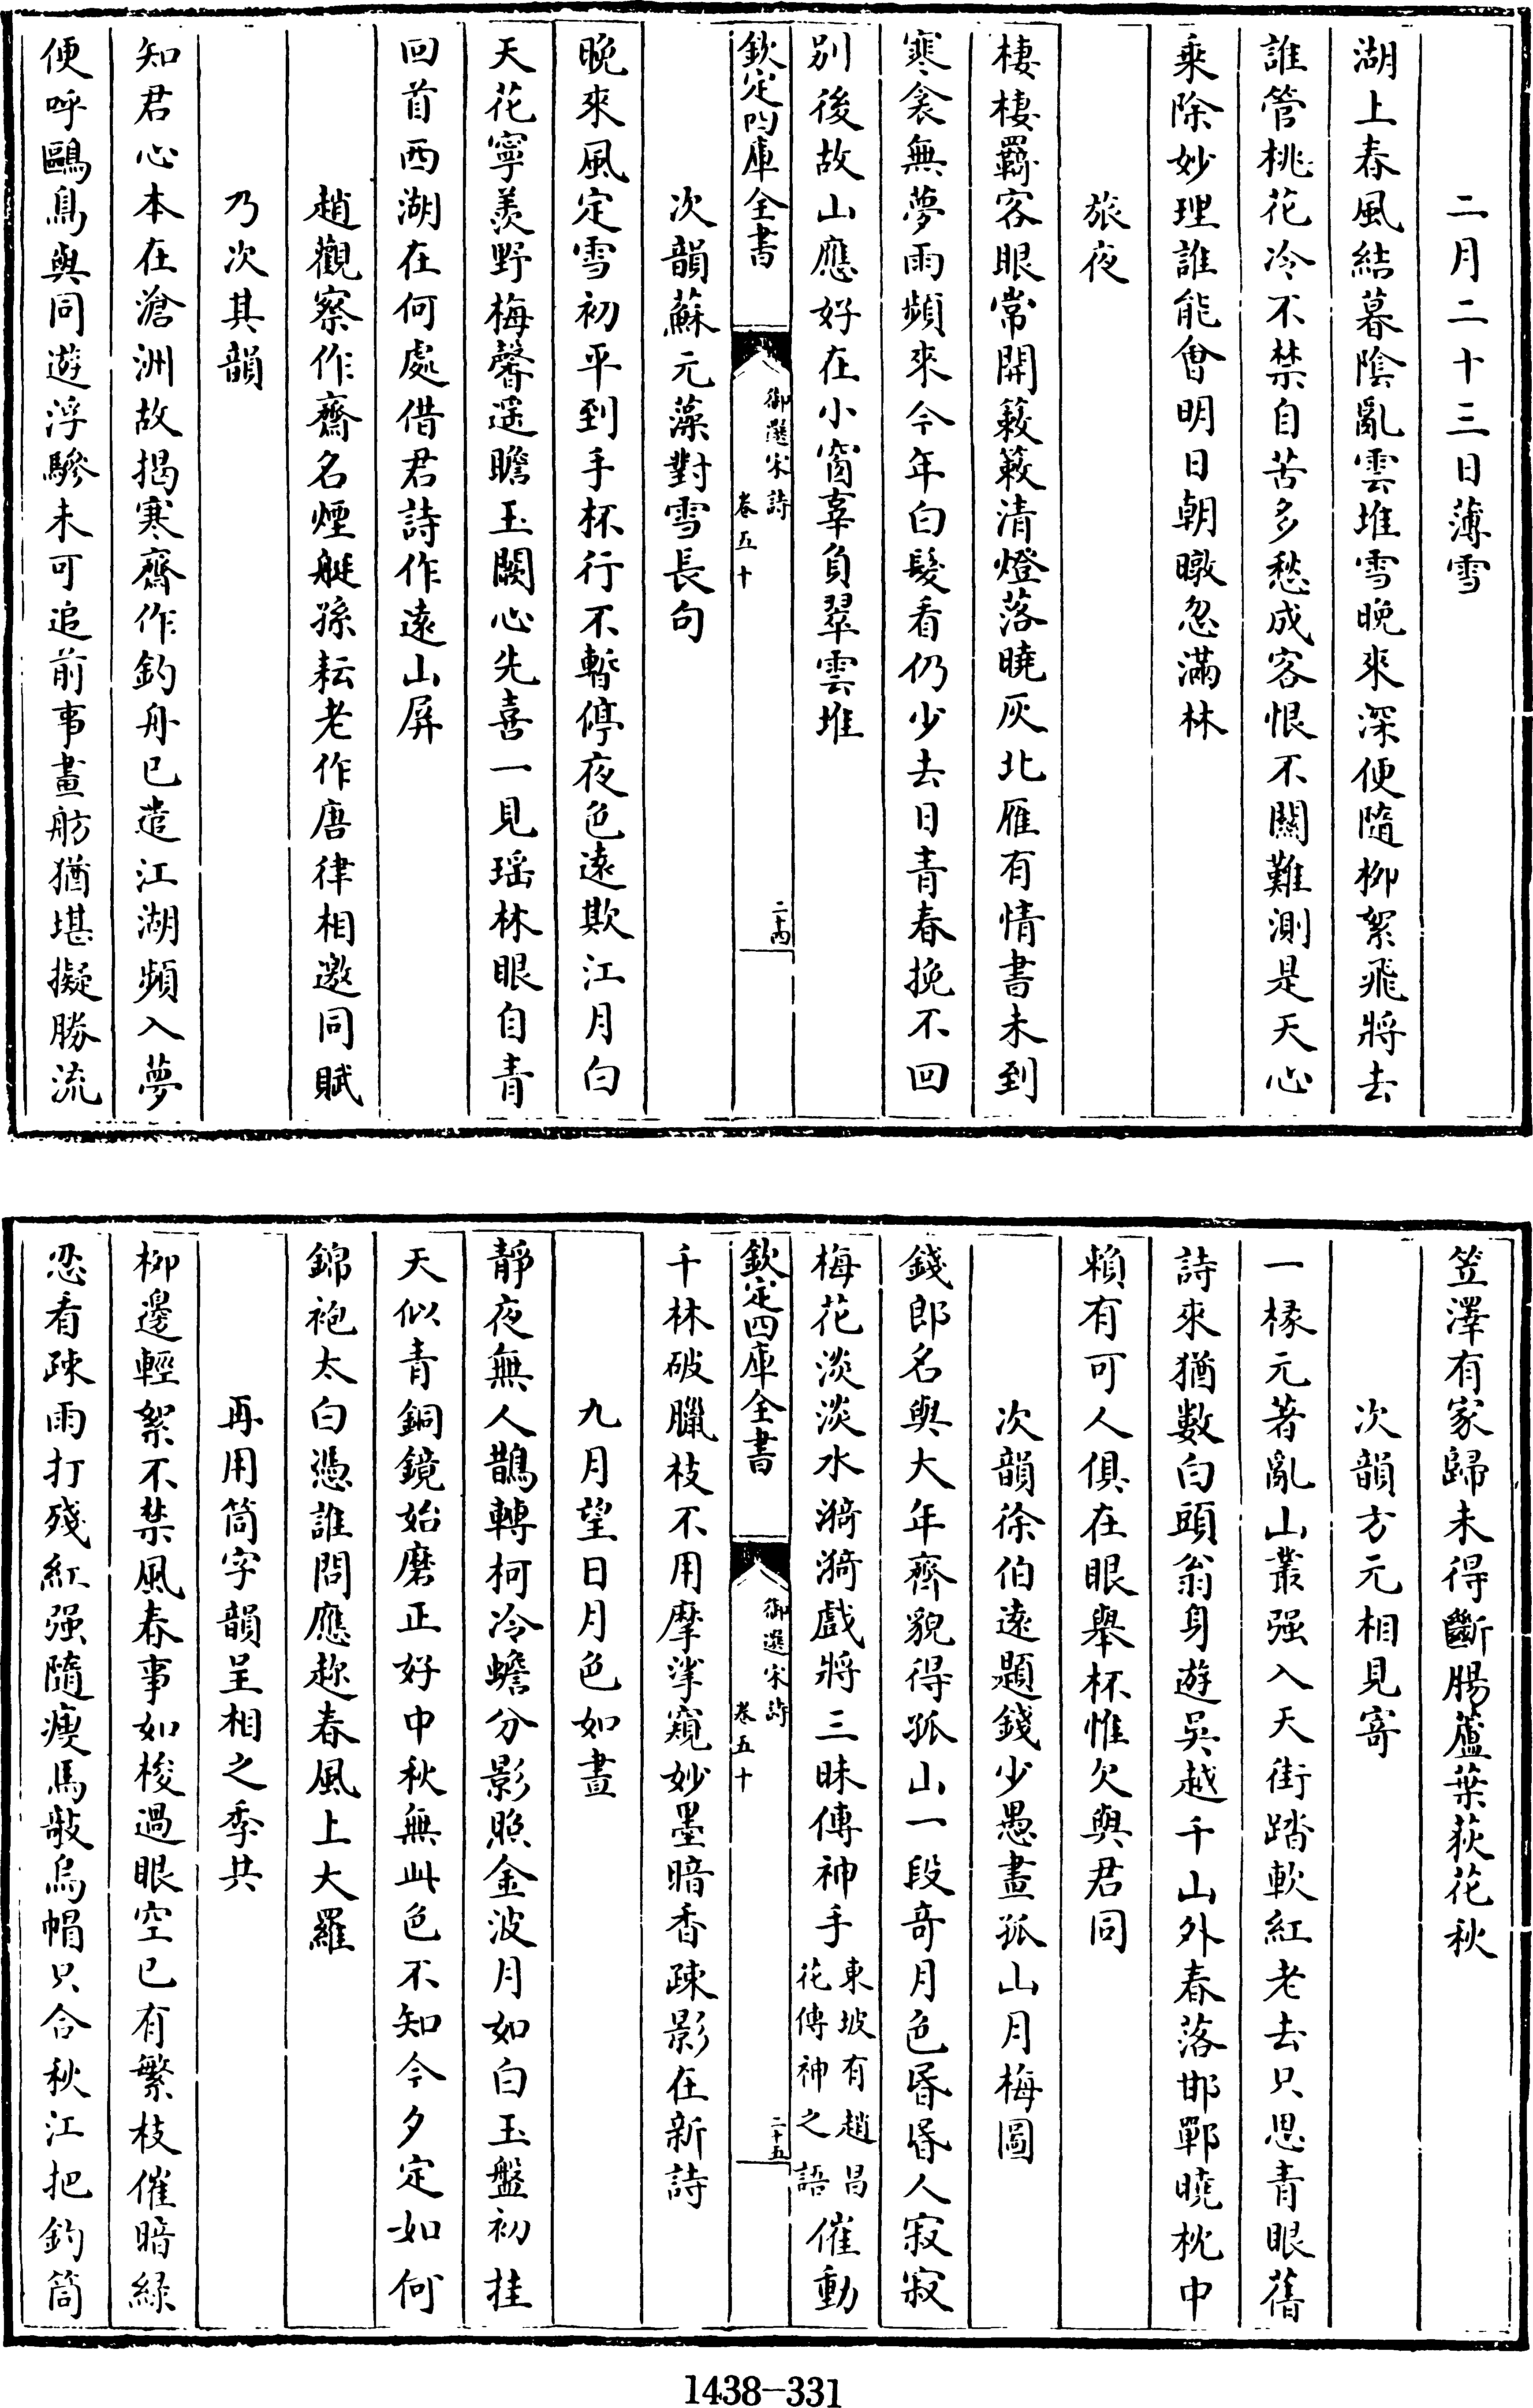 二月二十三日薄雪
湖上春風結暮陰亂雲堆雪晚來深便隨柳絮飛將去
誰管桃花冷不禁自苦多愁成客恨不關難測是天心
乘除妙理誰能會明日朝暾忽滿林
旅夜
棲棲羈客眼常開簌簌清燈落曉灰北雁有情書未到
寒衾無夢雨頻來今年白髮看仍少去日青春挽不回
別後故山應好在小窗辜負翠雲堆
欽定四庫全書
御選宋詩
卷五十
二十四
次韻蘇元藻對雪長句
晚來風定雪初平到手杯行不暫停夜色遠欺江月白
天花寧羨野梅馨遥瞻玉闕心先喜一見瑶林眼自青
回首西湖在何處借君詩作遠山屏
趙觀察作齋名煙艇孫耘老作唐律相邀同賦
乃次其韻
知君心本在滄洲故揭寒齋作釣舟已造江湖頻入夢
便呼鷗鳥與同遊浮驂未可追前事畫舫猶堪擬勝流
笠澤有家歸未得斷腸蘆葉荻花秋
次韻方元相見寄
一椽元著亂山叢强入天街踏軟紅老去只思青眼舊
詩來猶數白頭翁身遊吳越千山外春落邯鄲曉枕中
賴有可人俱在眼舉杯惟欠與君同
次韻徐伯遠題錢少愚畫孤山月梅圖
錢郎名與大年齊貌得孤山一段奇月色昏昏人寂寂
梅花淡淡水漪漪戲將三昧傳神手東坡有趙昌花傳神之語催動
欽定四庫全書
御選宋詩
卷五十
二十五
千林破臘枝不用摩挲窺妙墨暗香疎影在新詩
九月望日月色如晝
靜夜無人鵲轉柯冷蟾分影照金波月如白玉盤初挂
天似青銅鏡始磨正好中秋無此色不知今夕定如何
錦袍太白憑誰問應趂春風上大羅
再用筒字韻呈相之季共
柳邊輕絮不禁風春事如梭過眼空已有繁枝催暗綠
忍看疎雨打殘紅强隨瘦馬敲烏帽只合秋江把釣筒
1438-331